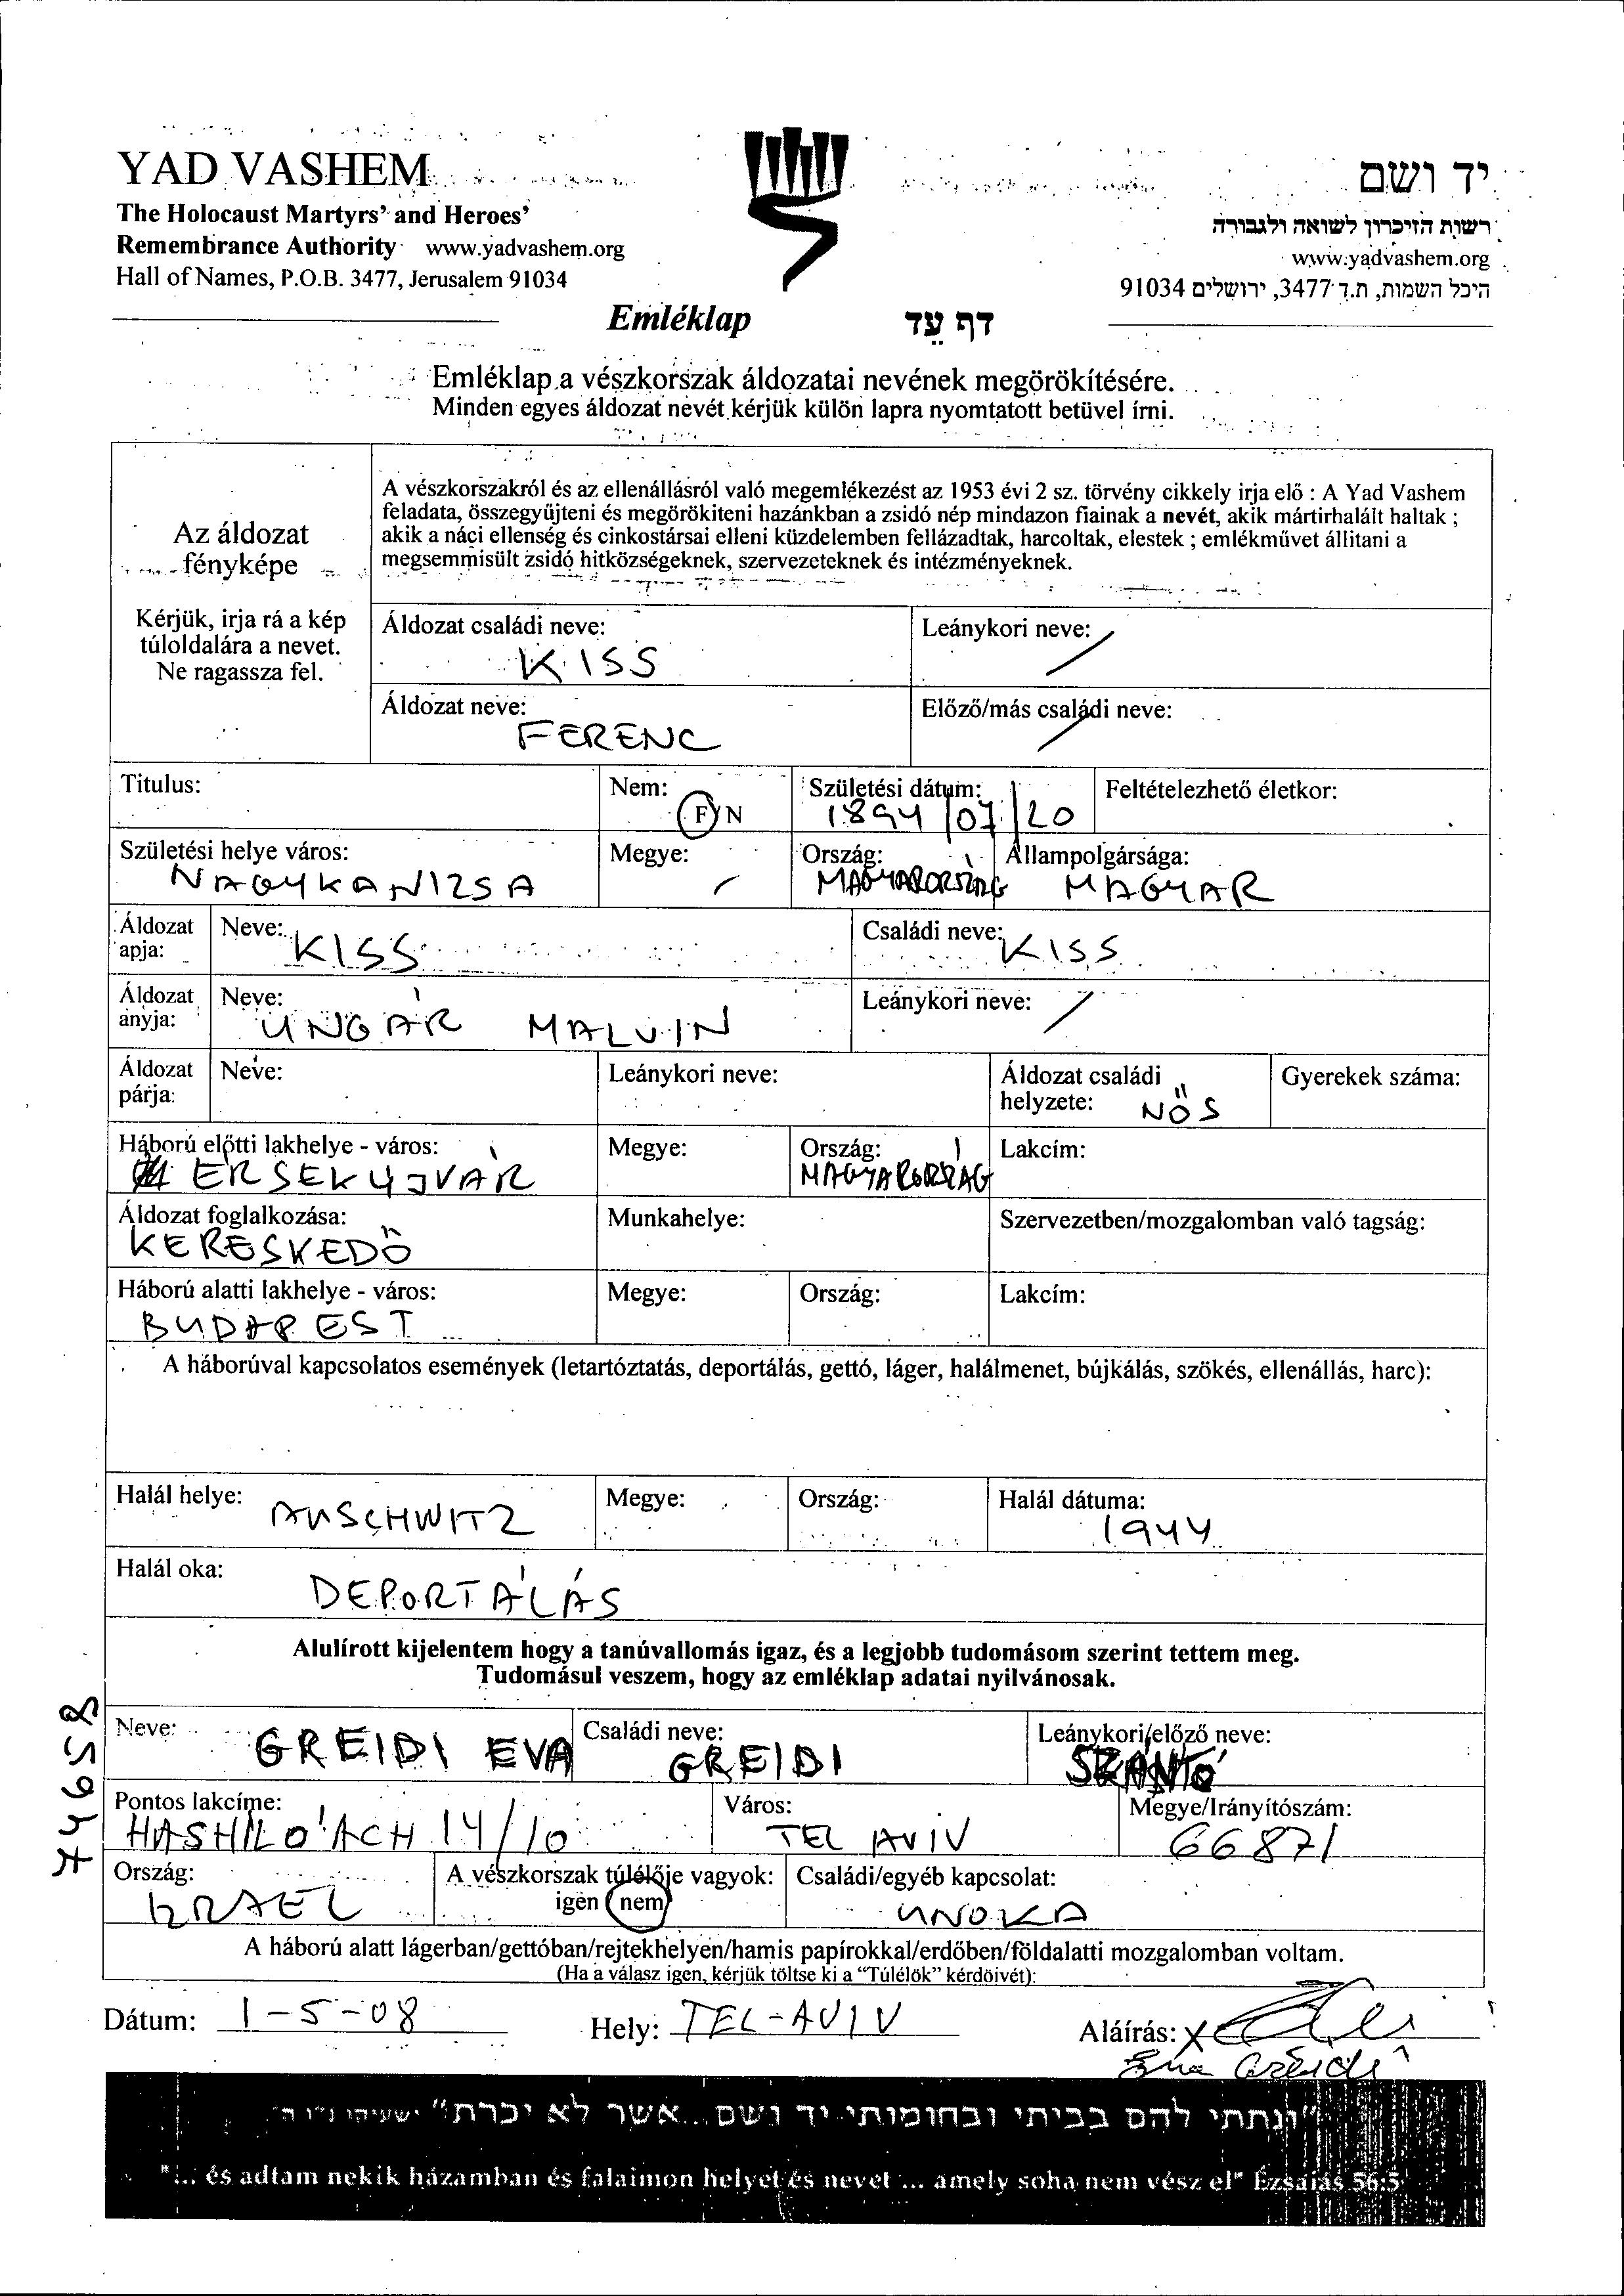 YAD VASHEM
The Holocaust Martyrs' and Heroes'
Remembrance Authority www.yadvashem.org
Hall of Names, P.O.B. 3477, Jerusalem 91034
יד ושם
רשות הזיכרון לשואה ולגבורה
www.yadvashem.org
היכל השמות, ת.ד 3477, ירושלים 91034
Emléklap דף עֵד
Emléklap a vészkorszak áldozatai nevének megörökítésére.
Minden egyes áldozat nevét kérjük külön lapra nyomtatott betüvel írni.
Az áldozat
fényképe
Kérjük, irja rá a kép
túloldalára a nevet.
Ne ragassza fel.
A vészkorszakról és az ellenállásról való megemlékezést az 1953 évi 2 sz. törvény cikkely irja elő : A Yad Vashem
feladata, összegyűjteni és megörökiteni hazánkban a zsidó nép mindazon fiainak a nevét, akik mártirhalált haltak ;
akik a náci ellenség és cinkostársai elleni küzdelemben fellázadtak, harcoltak, elestek ; emlékművet állitani a
megsemmisült zsidó hitközségeknek, szervezeteknek és intézményeknek.
Áldozat családi neve: KISS Leánykori neve: /
Áldozat neve: FERENC Előző/más családi neve: /
Titulus: Nem: F N Születési dátum: 1894/07/20 Feltételezhető életkor:
Születési helye város: NAGYKANIZSA Megye: - Ország: MAGYARORSZÁG Állampolgársága: MAGYAR
Áldozat apja: Neve: KISS Családi neve: KISS
Áldozat anyja: Neve: UNGÁR MALVIN Leánykori neve: /
Áldozat párja: Neve: Leánykori neve: Áldozat családi helyzete: NŐS Gyerekek száma:
Háború előtti lakhelye - város: ERSEKUJVÁR Megye: Ország: MAGYARORRÁG Lakcím:
Áldozat foglalkozása: KERESKEDŐ Munkahelye: Szervezetben/mozgalomban való tagság:
Háború alatti lakhelye - város: BUDAPEST Megye: Ország: Lakcím:
A háborúval kapcsolatos események (letartóztatás, deportálás, gettó, láger, halálmenet, bújkálás, szökés, ellenállás, harc):
Halál helye: AUSCHWITZ Megye: Ország: Halál dátuma: 1944
Halál oka: DEPORTÁLÁS
Alulírott kijelentem hogy a tanúvallomás igaz, és a legjobb tudomásom szerint tettem meg.
Tudomásul veszem, hogy az emléklap adatai nyilvánosak.
Neve: GREIDI EVA Családi neve: GREIDI Leánykori/előző neve: SZÁNTÓ
Pontos lakcíme: HASHILO'ACH 14/10 Város: TEL AVIV Megye/Irányítószám: 66871
Ország: IZRAEL A vészkorszak túlélője vagyok: igen nem Családi/egyéb kapcsolat: UNOKA
A háború alatt lágerban/gettóban/rejtekhelyen/hamis papírokkal/erdőben/földalatti mozgalomban voltam.
(Ha a válasz igen, kérjük töltse ki a "Túlélök" kérdöivét):
Dátum: 1-5-08 Hely: TEL-AVIV Aláírás: X
Eva Greidi
"ונתתי להם בביתי ובחומותי יד ושם...אשר לא יכרת" ישעיהו נ"ו ה'
"... és adtam nekik házamban és falaimon helyet és nevet ... amely soha nem vész el" Ézsaiás 56:5